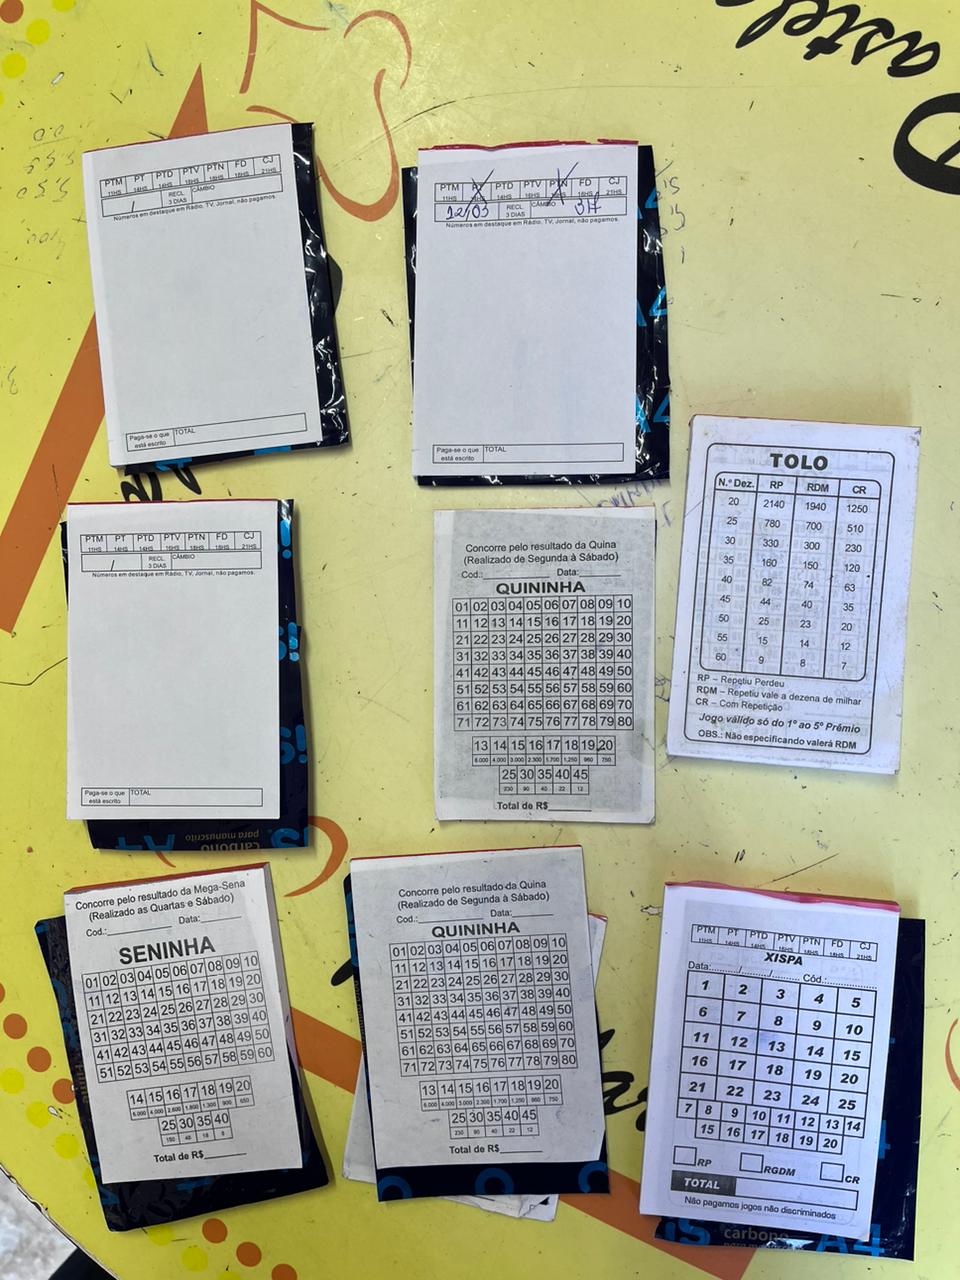 PTM PT PTD PTV PTN FD CJ
11HS 14HS 14HS 16HS 18HS 18HS 21HS
/ RECL. 3 DIAS CÂMBIO
Números em destaque em Rádio, TV, Jornal, não pagamos.
Paga-se o que está escrito TOTAL
PTM PTD PTV PTN FD CJ
11HS 14HS 16HS 18HS 18HS 21HS
12/03 RECL. 3 DIAS CÂMBIO 317
Números em destaque em Rádio, TV, Jornal, não pagamos.
Paga-se o que está escrito TOTAL
TOLO
N.º Dez. RP RDM CR
20 2140 1940 1250
25 780 700 510
30 330 300 230
35 160 150 120
40 82 74 63
45 44 40 35
50 25 23 20
55 15 14 12
60 9 8 7
RP – Repetiu Perdeu
RDM – Repetiu vale a dezena de milhar
CR – Com Repetição
Jogo válido só do 1º ao 5º Prêmio
OBS.: Não especificando valerá RDM
PTM PT PTD PTV PTN FD CJ
11HS 14HS 14HS 16HS 18HS 18HS 21HS
/ RECL. 3 DIAS CÂMBIO
Números em destaque em Rádio, TV, Jornal, não pagamos.
Paga-se o que está escrito TOTAL
carbono
para manuscrito
A4
Concorre pelo resultado da Quina
(Realizado de Segunda à Sábado)
Cod.:________ Data:________
QUININHA
01 02 03 04 05 06 07 08 09 10
11 12 13 14 15 16 17 18 19 20
21 22 23 24 25 26 27 28 29 30
31 32 33 34 35 36 37 38 39 40
41 42 43 44 45 46 47 48 49 50
51 52 53 54 55 56 57 58 59 60
61 62 63 64 65 66 67 68 69 70
71 72 73 74 75 76 77 78 79 80
13 14 15 16 17 18 19 20
6.000 4.000 3.000 2.300 1.700 1.250 960 750
25 30 35 40 45
230 90 40 22 12
Total de R$________
Concorre pelo resultado da Mega-Sena
(Realizado as Quartas e Sábado)
Cod.:________ Data:________
SENINHA
01 02 03 04 05 06 07 08 09 10
11 12 13 14 15 16 17 18 19 20
21 22 23 24 25 26 27 28 29 30
31 32 33 34 35 36 37 38 39 40
41 42 43 44 45 46 47 48 49 50
51 52 53 54 55 56 57 58 59 60
14 15 16 17 18 19 20
6.000 4.000 2.600 1.800 1.300 900 650
25 30 35 40
150 18 8
Total de R$________
Concorre pelo resultado da Quina
(Realizado de Segunda à Sábado)
Cod.:________ Data:________
QUININHA
01 02 03 04 05 06 07 08 09 10
11 12 13 14 15 16 17 18 19 20
21 22 23 24 25 26 27 28 29 30
31 32 33 34 35 36 37 38 39 40
41 42 43 44 45 46 47 48 49 50
51 52 53 54 55 56 57 58 59 60
61 62 63 64 65 66 67 68 69 70
71 72 73 74 75 76 77 78 79 80
13 14 15 16 17 18 19 20
6.000 4.000 3.000 2.300 1.700 1.250 960 750
25 30 35 40 45
230 90 40 22 12
Total de R$________
PTM PT PTD PTV PTN FD CJ
11HS 14HS 14HS 16HS 18HS 18HS 21HS
XISPA
Data:....../....../...... Cód.:............
1 2 3 4 5
6 7 8 9 10
11 12 13 14 15
16 17 18 19 20
21 22 23 24 25
7 8 9 10 11 12 13 14
15 16 17 18 19 20
RP RGDM CR
TOTAL
Não pagamos jogos não discriminados
carbono
A4